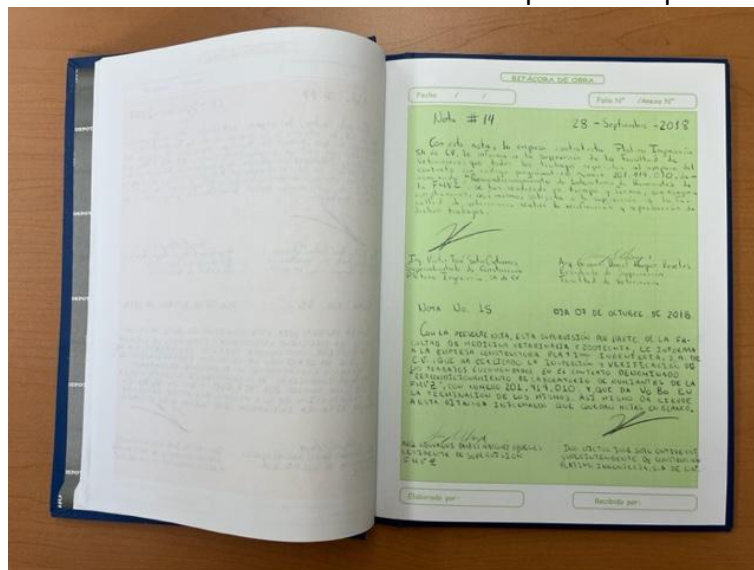 BITÁCORA DE OBRA
Fecha / /
Folio N° /Anexo N°
Nota #14
28 - Septiembre - 2018
Con esta nota, la empresa contratista Platino Ingeniería
SA de CV, le informa a la supervisión de la Facultad de
Veterinaria que todos los trabajos al amparo del
contrato con código programático número 201.919.010, 
"Reacondicionamiento de Laboratorio de Rumiantes de
la FMVZ" se han realizado en tiempo y forma, 
a la supervisión de la Fa-
cultad de veterinaria realice la verificación y aprobación de
dichos trabajos.
Ing. Victor José Soto
Superintendente de Construcción
Platino Ingeniería, SA de CV
Arq.
Residente de Supervisión
Facultad de Veterinaria
NOTA No. 15
DIA 07 DE OCTUBRE DE 2018
CON LA PRESENTE NOTA, ESTA SUPERVISIÓN POR PARTE DE LA FA-
CULTAD DE MEDICINA VETERINARIA Y ZOOTECNIA, LE INFORMA
A LA EMPRESA CONSTRUCTORA PLATINO INGENIERIA, S.A. DE
C.V., QUE HA REALIZADO LA INSPECCIÓN Y VERIFICACIÓN DE
LOS TRABAJOS EN EL CONTRATO DENOMINADO
"REACONDICIONAMIENTO DE LABORATORIO DE RUMIANTES DE LA
FMVZ", CON NUMERO 201.919.010 Y QUE DA Vo Bo EN
LA TERMINACION DE LOS MISMOS. ASI MISMO DA CIERRE
A ESTA BITACORA INFORMANDO QUE QUEDAN HOJAS EN BLANCO.
ARQ.
RESIDENTE DE SUPERVISIÓN
FMVZ
ING. VICTOR JOSE SOTO
SUPERINTENDENTE DE CONSTRUCCION
PLATINO INGENIERIA, S.A. DE C.V.
Elaborado por:
Recibido por: